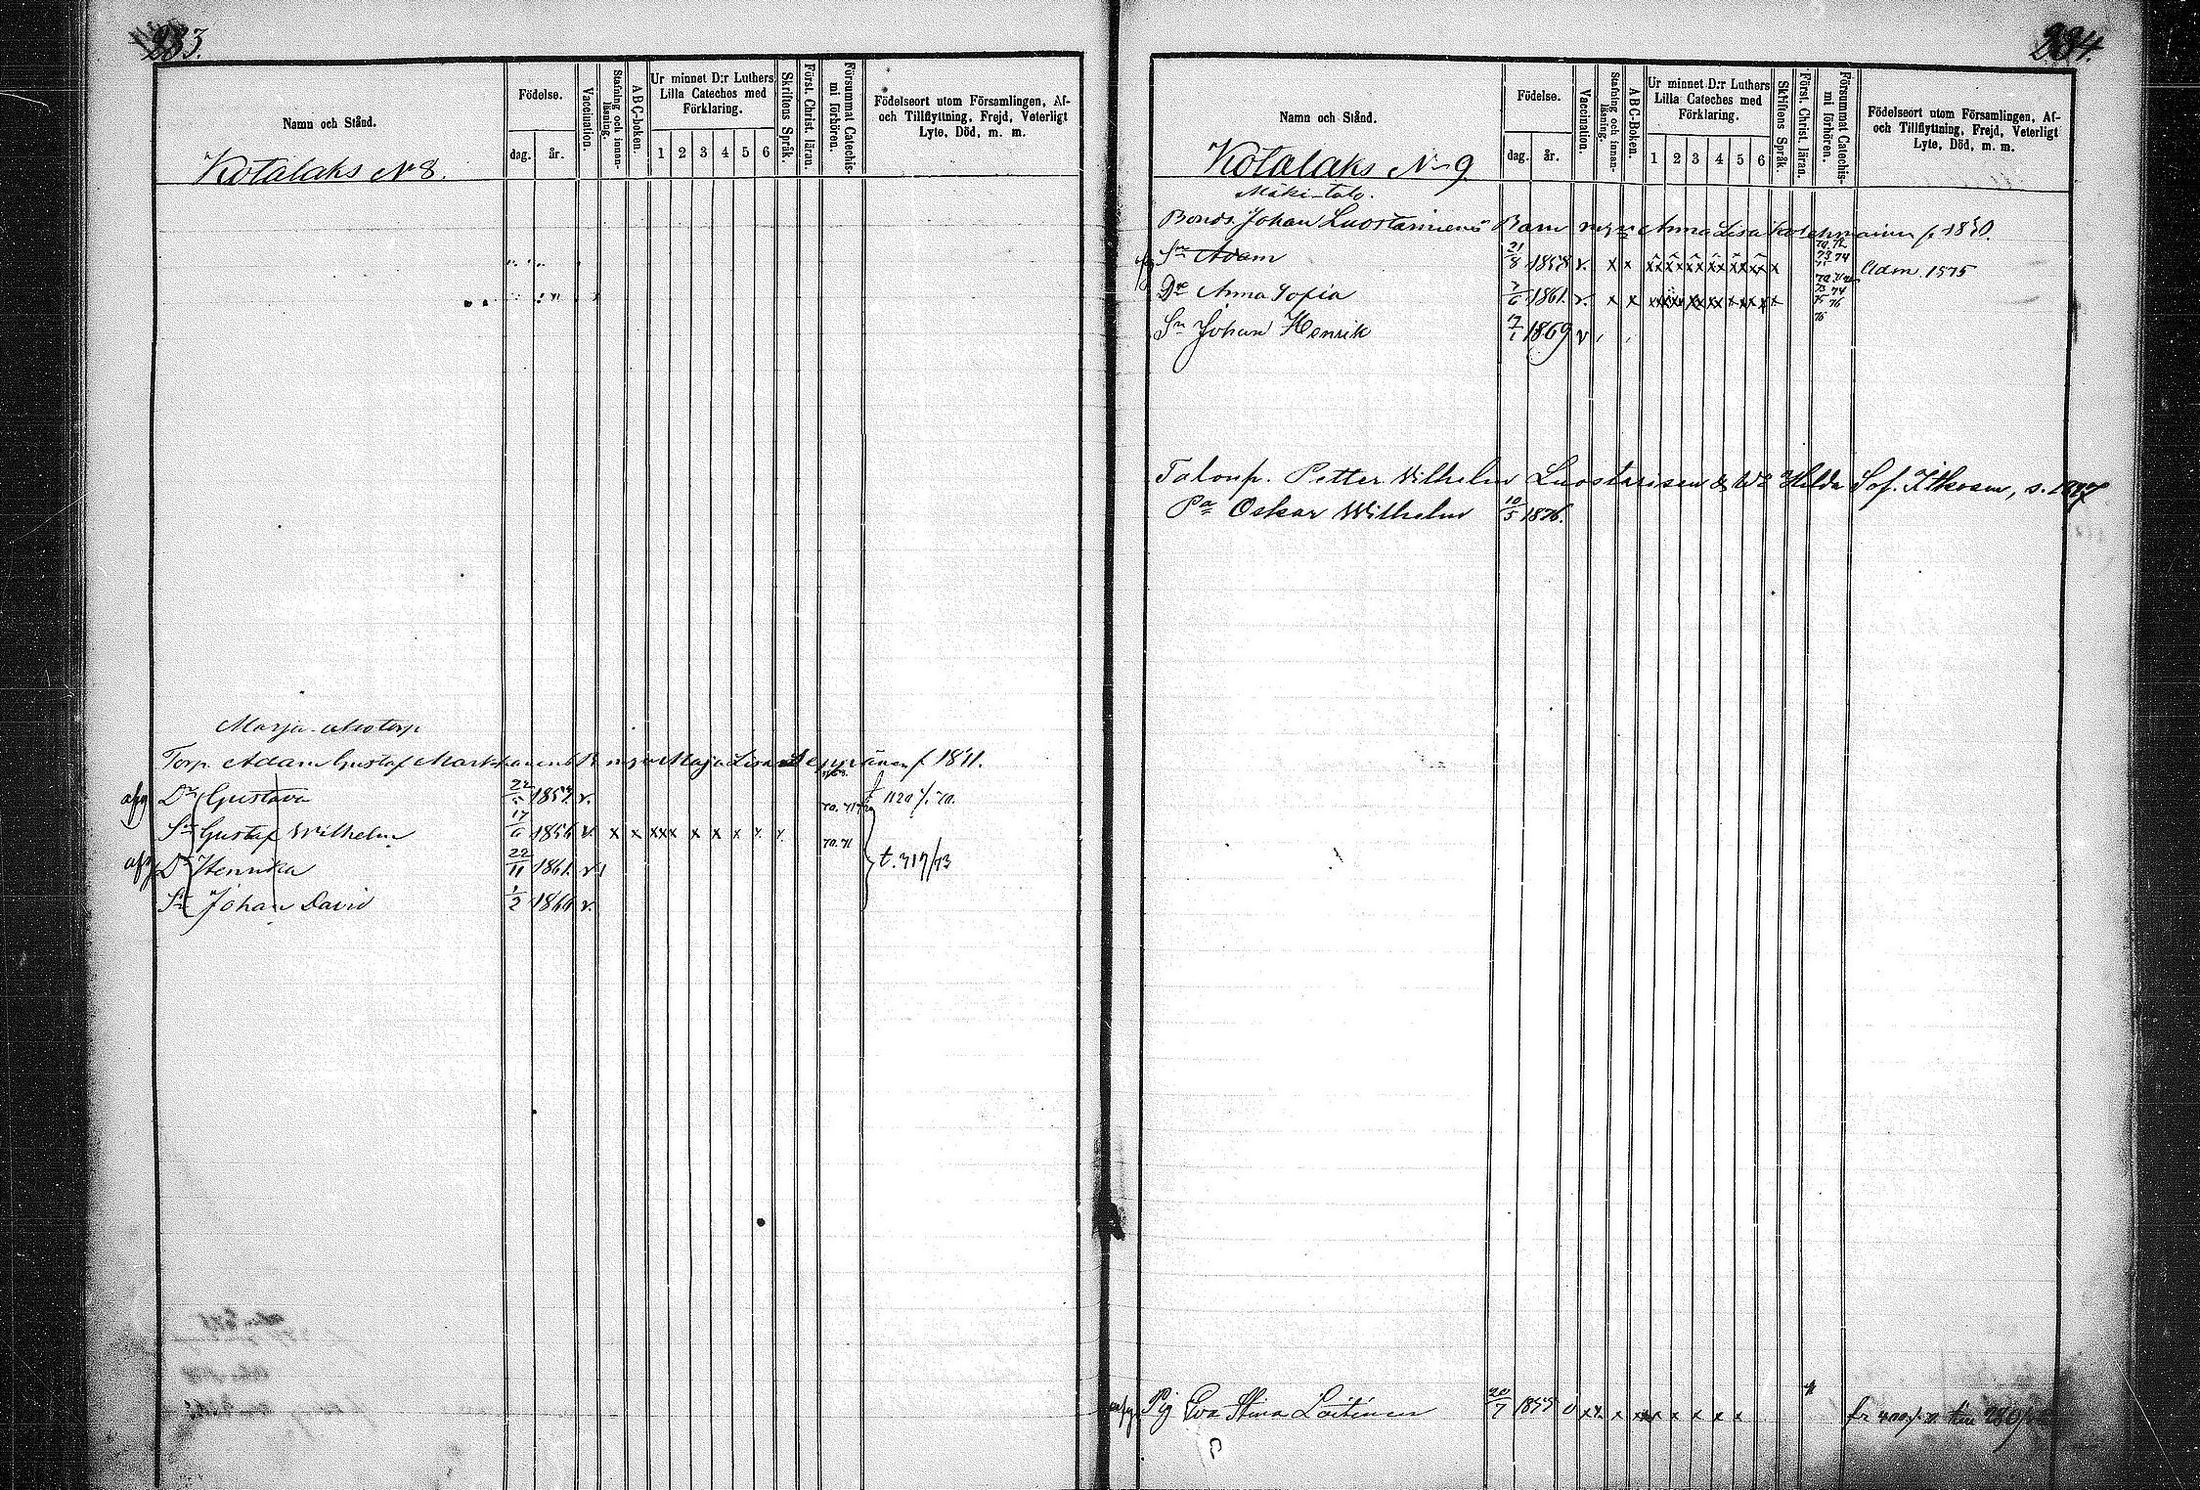 283.
Namn och Stånd.
Födelse.
dag.
år.
Vaccination.
Stafning och innanläsning.
ABC-boken.
Ur minnet D:r Luthers Lilla Cateches med Förklaring.
1 2 3 4 5 6
Skriftens Språk.
Först. Christ. läran.
Försummat Catechismi förhören.
Födelseort utom Församlingen, Af- och Tillflyttning, Frejd, Veterligt Lyte, Död, m. m.
Kotalaks N 8.
Torp. Adam Gustaf f. 1841.
D:r Gustava 1857 v.
Sn Gustaf Wilhelm 17/6 1856 v. x x x x x x x x 70. 71
D:r Henrika 22/11 1861 v. t. 717/73
Sn Johan David 1/2 1866 v.
284.
Namn och Stånd.
Födelse.
dag.
år.
Vaccination.
Stafning och innanläsning.
ABC-Boken.
Ur minnet D:r Luthers Lilla Cateches med Förklaring.
1 2 3 4 5 6
Skriftens Språk.
Först. Christ. läran.
Försummat Catechismi förhören.
Födelseort utom Församlingen, Af- och Tillflyttning, Frejd, Veterligt Lyte, Död, m. m.
Kotalaks N 9
Mäki-talo.
Bonds. Johan Luostarinens Barn Anna Lisa Kolehmainen f. 1830.
Sn Adam 21/8 1858 v. x x Adm. 1575
Dr Anna Sofia 7/6 1861. v. x x
Sn Johan Henrik 17/1 1869 v
Talonp. Petter Wilhelm Luostarisen & W:s Hilda Sof. Itkosen, s. 1847
Pa Oskar Wilhelm 10/5 1876.
Pig Eva Stina Laitinen 20/7 1855 v